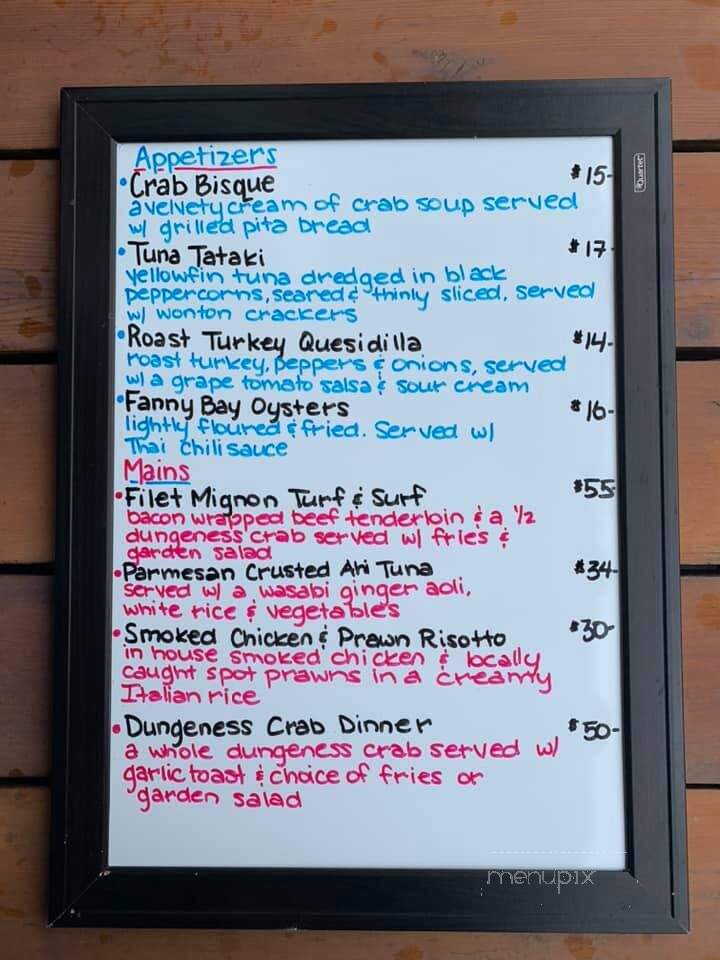 Appetizers
• Crab Bisque $15-
a velvety cream of crab soup served
w/ grilled pita bread
• Tuna Tataki $17-
yellowfin tuna dredged in black
peppercorns, seared & thinly sliced, served
w/ wonton crackers
• Roast Turkey Quesidilla $14-
roast turkey, peppers & onions, served
w/ a grape tomato salsa & sour cream
• Fanny Bay Oysters $16-
lightly floured & fried. Served w/
Thai chili sauce
Mains
• Filet Mignon Turf & Surf $55
bacon wrapped beef tenderloin & a 1/2
dungeness crab served w/ fries &
garden salad
• Parmesan Crusted Ahi Tuna $34-
served w/ a wasabi ginger aoli,
white rice & vegetables
• Smoked Chicken & Prawn Risotto $30-
in house smoked chicken & locally
caught spot prawns in a creamy
Italian rice
• Dungeness Crab Dinner $50-
a whole dungeness crab served w/
garlic toast & choice of fries or
garden salad
Quartet
menupix